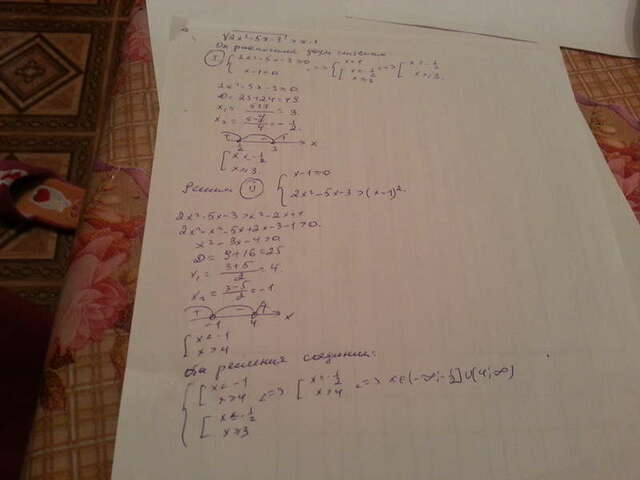 √2x²-5x-3 > x-1
Он равносилен двум системам:
I { 2x²-5x-3≥0
x-1<0 <=> { x<1 [ x≤-1/2 x≥3 <=> [ x≤-1/2
x≥3.
2x²-5x-3=0
D=25+24=49
x₁= 5+7/4 = 3.
x₂= 5-7/4 = -1/2.
+ - + x
1/2 3
[ x≤-1/2
x≥3.
Решим II { x-1≥0
2x²-5x-3>(x-1)²
2x²-5x-3>x²-2x+1
2x²-x²-5x+2x-3-1>0.
x²-3x-4>0
D=9+16=25
x₁= 3+5/2 = 4.
x₂= 3-5/2 = -1.
+ - + x
-1 4
[ x<-1
x>4
Оба решения соединим:
{ [ x<-1
x>4 <=> [ x≤-1/2
x>4 <=> x∈(-∞;-1/2]∪(4;∞)
[ x≤-1/2
x≥3